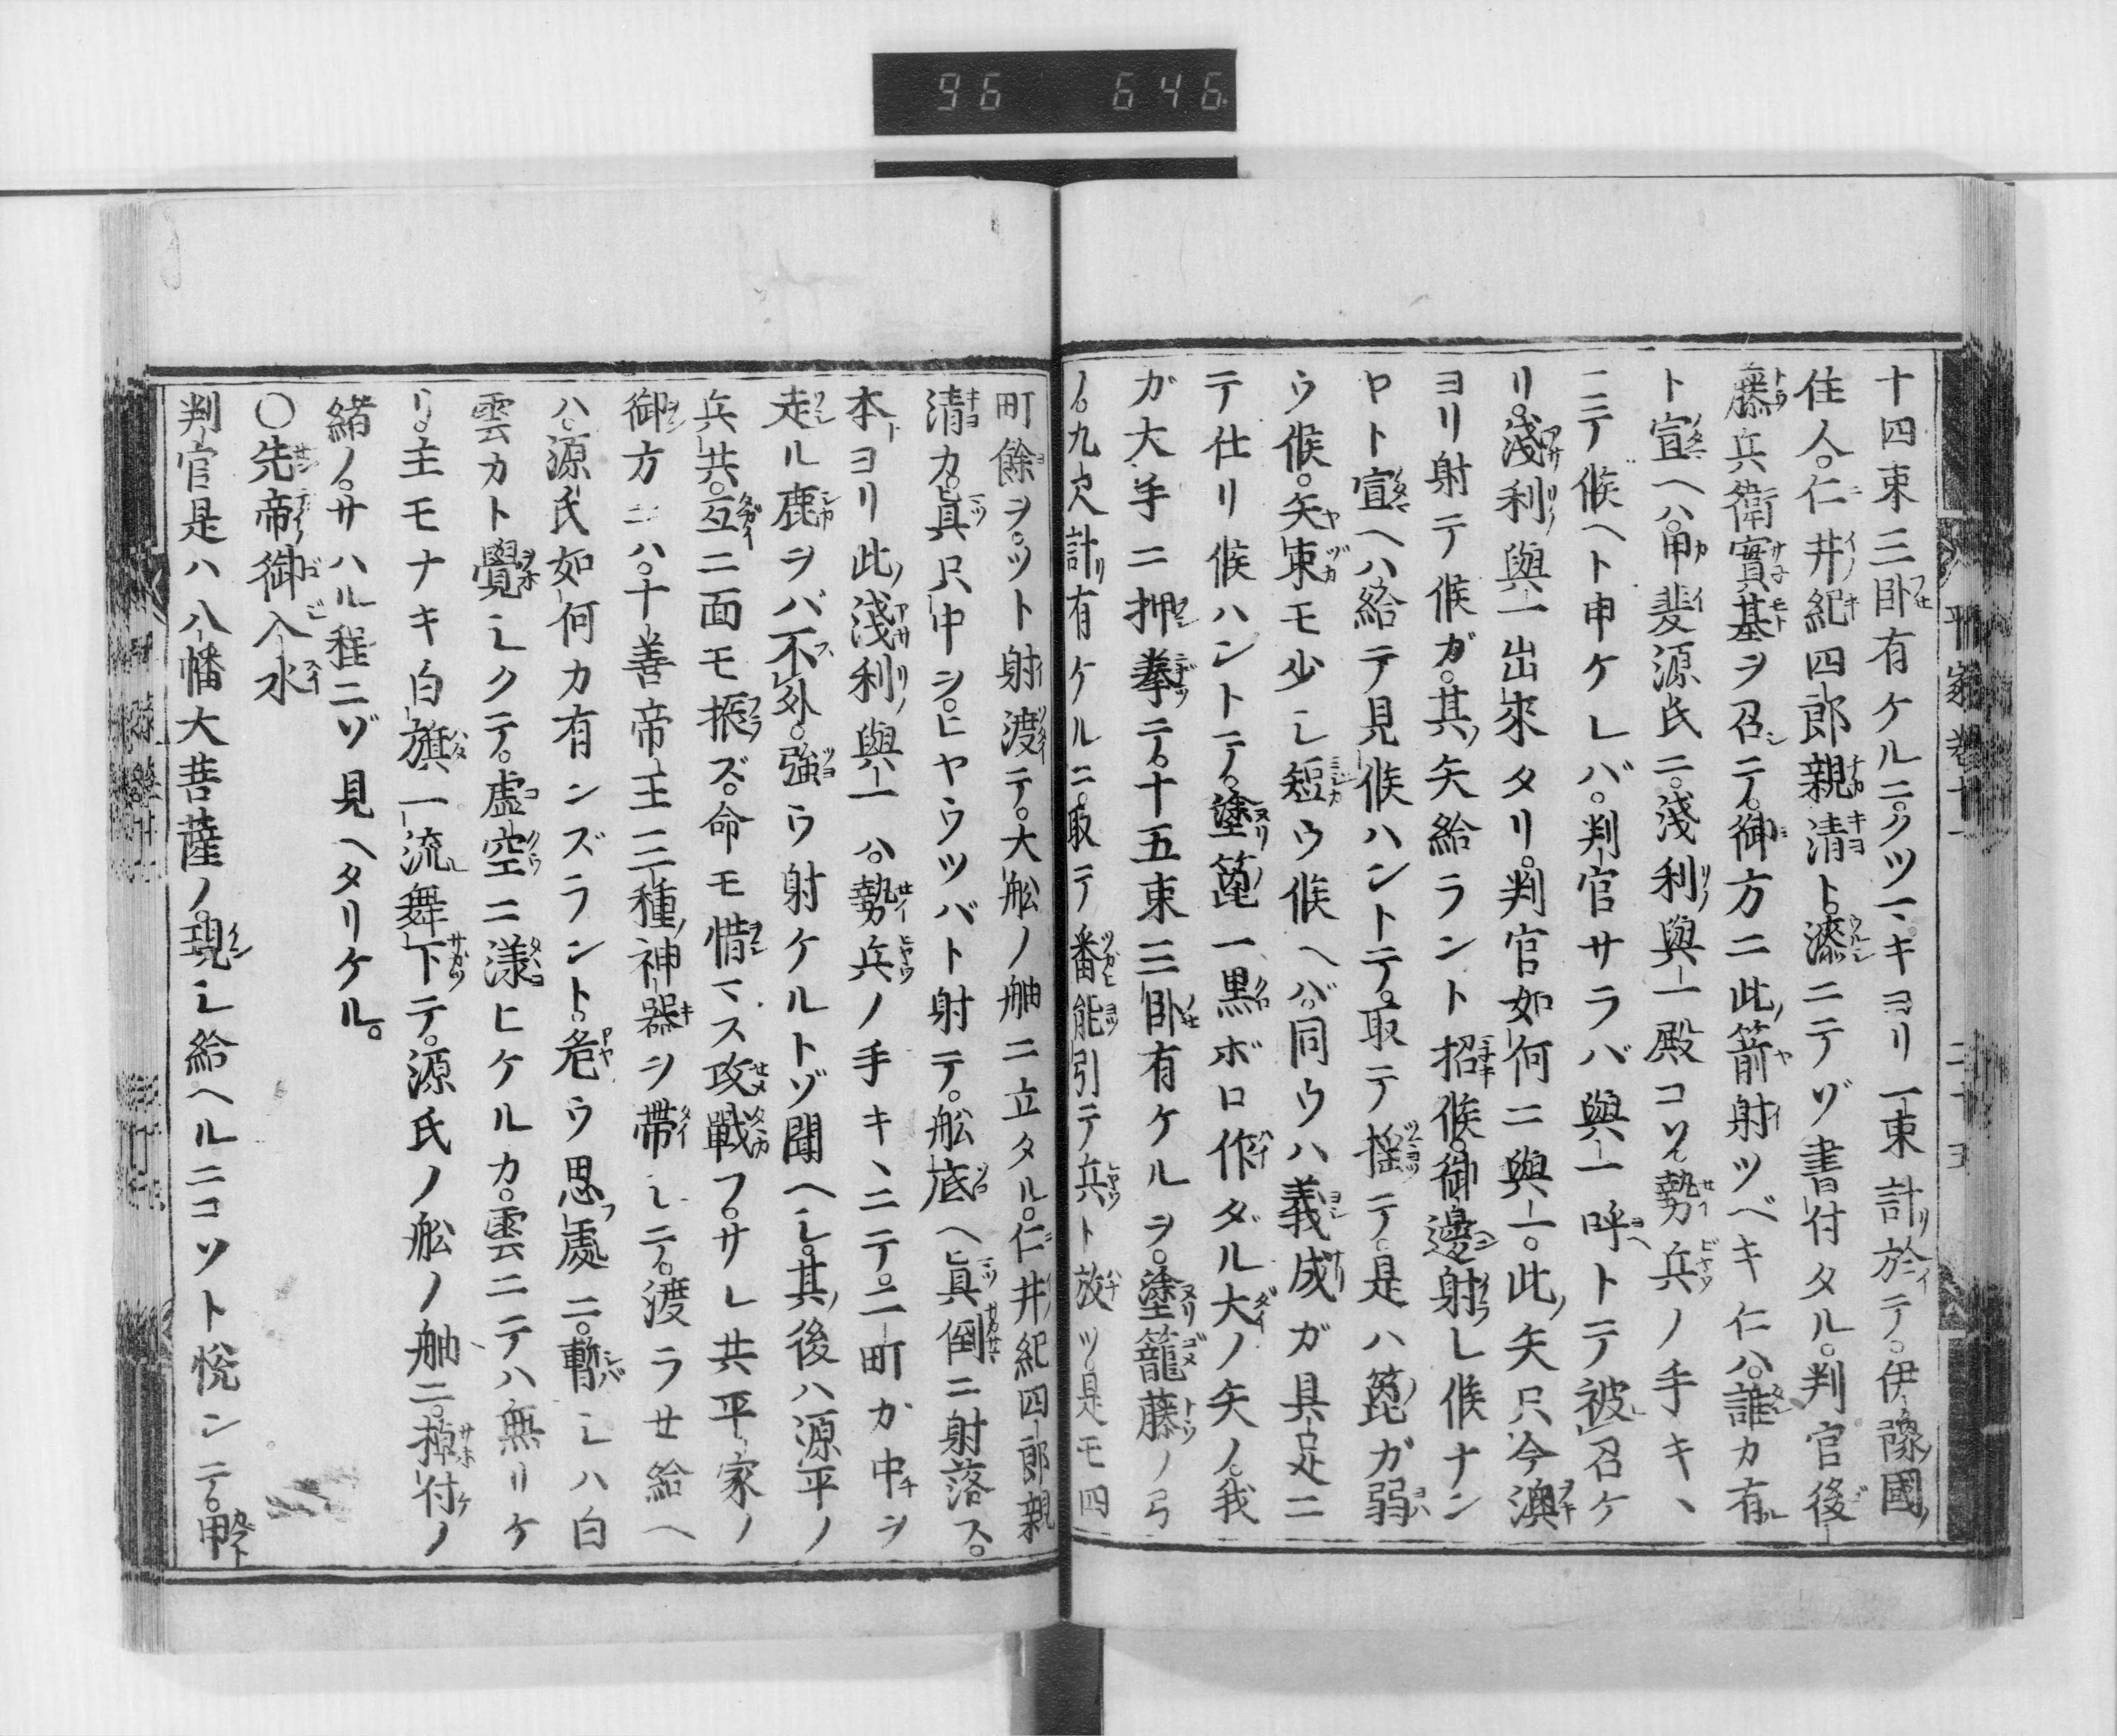 96 646
十四束三臥有ケルニ。クツマキヨリ一束計於テ。伊豫國ノ
住人。仁井紀四郎親清ト。漆ニテゾ書付タル。判官後
藤兵衛實基ヲ召テ。御方ニ此箭射ツベキ仁ハ。誰カ有
ト宣ヘハ。甲斐源氏ニ。淺利與一殿コソ。勢兵ノ手キヽ
ニテ候ヘト申ケレバ。判官サラバ與一呼トテ被召ケ
リ。淺利與一出來タリ。判官如何ニ與一。此矢只今澳
ヨリ射テ候ガ。其矢給ラント招候。御邊射レ候ナン
ヤト宣ヘハ給テ見候ハントテ。取テ搖テ。是ハ箆ガ弱
ウ候。矢束モ少シ短ウ候ヘバ。同ウハ義成ガ具足ニ
テ仕リ候ハントテ。塗箆ノ黒ボロ作ダル大ノ矢ノ。我
ガ大手ニ押拳テ。十五束三臥有ケルヲ。塗籠藤ノ弓
ノ。九尺計有ケルニ。取テ番能引テ兵ト放ツ是モ四
町餘ヲ。ツト射渡テ。大舩ノ舳ニ立タル。仁井紀四郎親
清カ。眞只中ヲ。ヒヤウツバト射テ。舩底ヘ眞倒ニ射落ス。
本ヨリ此淺利與一ハ。勢兵ノ手キヽニテ。二町カ中ヲ
走ル鹿ヲバ不外。強ウ射ケルトゾ聞ヘシ。其後ハ源平ノ
兵共。互ニ面モ振ズ。命モ惜マス攻戰フ。サレ共平家ノ
御方ニハ。十善帝王三種神器ヲ帶シテ。渡ラセ給ヘ
ハ。源氏如何カ有ンズラント。危ウ思處ニ。暫シハ白
雲カト覺シクテ。虚空ニ漾ヒケルカ。雲ニテハ無リケ
リ。主モナキ白旗一流舞下テ。源氏ノ舩ノ舳ニ。掉付ノ
緒ノ。サハル程ニゾ見ヘタリケル。
〇先帝御入水
判官是ハ八幡大菩薩ノ。現シ給ヘルニコソト悦ンテ。甲
平家巻十一 二十五